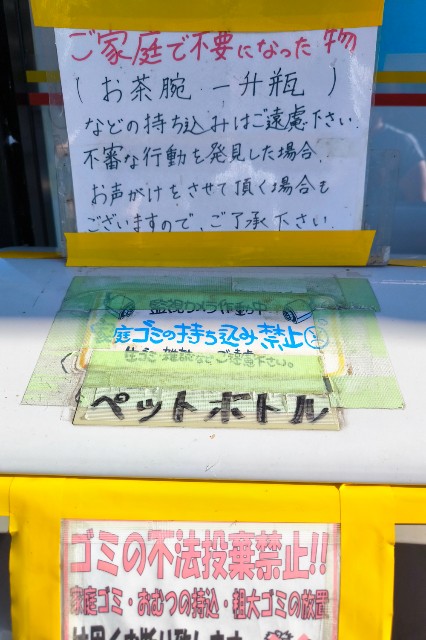 ご家庭で不要になった物
(お茶腕 一升瓶)
などの持ち込みはご遠慮下さい.
不審な行動を発見した場合.
お声がけをさせて頂く場合も
ございますので、ご了承下さい.
監視カメラ作動中
家庭ゴミの持ち込み禁止
生ゴミ 雑誌など ご遠慮下さい。
ペットボトル
ゴミの不法投棄禁止!!
家庭ゴミ・おむつの持込・粗大ゴミの放置
は固くお断り致します